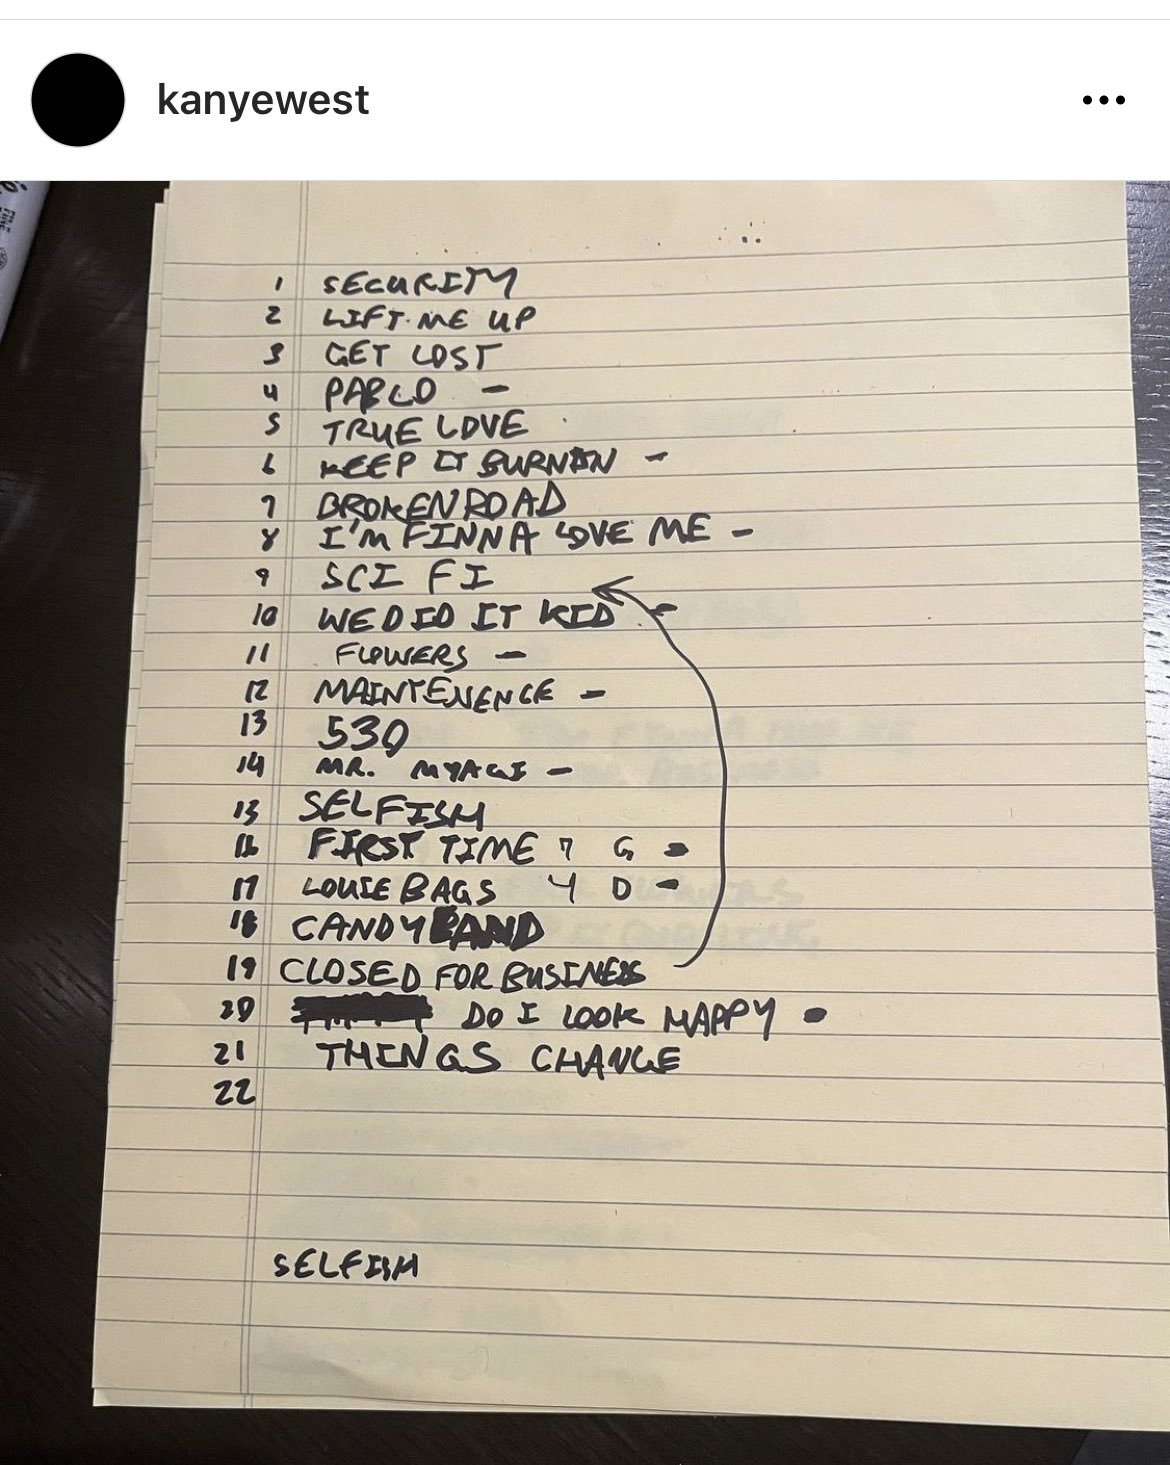 kanyewest
1 SECURITY
2 LIFT ME UP
3 GET LOST
4 PABLO -
5 TRUE LOVE
6 KEEP IT BURNIN -
7 BROKEN ROAD
8 I'M FINNA LOVE ME -
9 SCI FI
10 WE DID IT KID -
11 FLOWERS -
12 MAINTENENCE -
13 530
14 MR. MYAGI -
15 SELFISH
16 FIRST TIME 7 G -
17 LOUIE BAGS 4 D -
18 CANDYLAND
19 CLOSED FOR BUSINESS
20 DO I LOOK HAPPY -
21 THINGS CHANGE
22
SELFISH